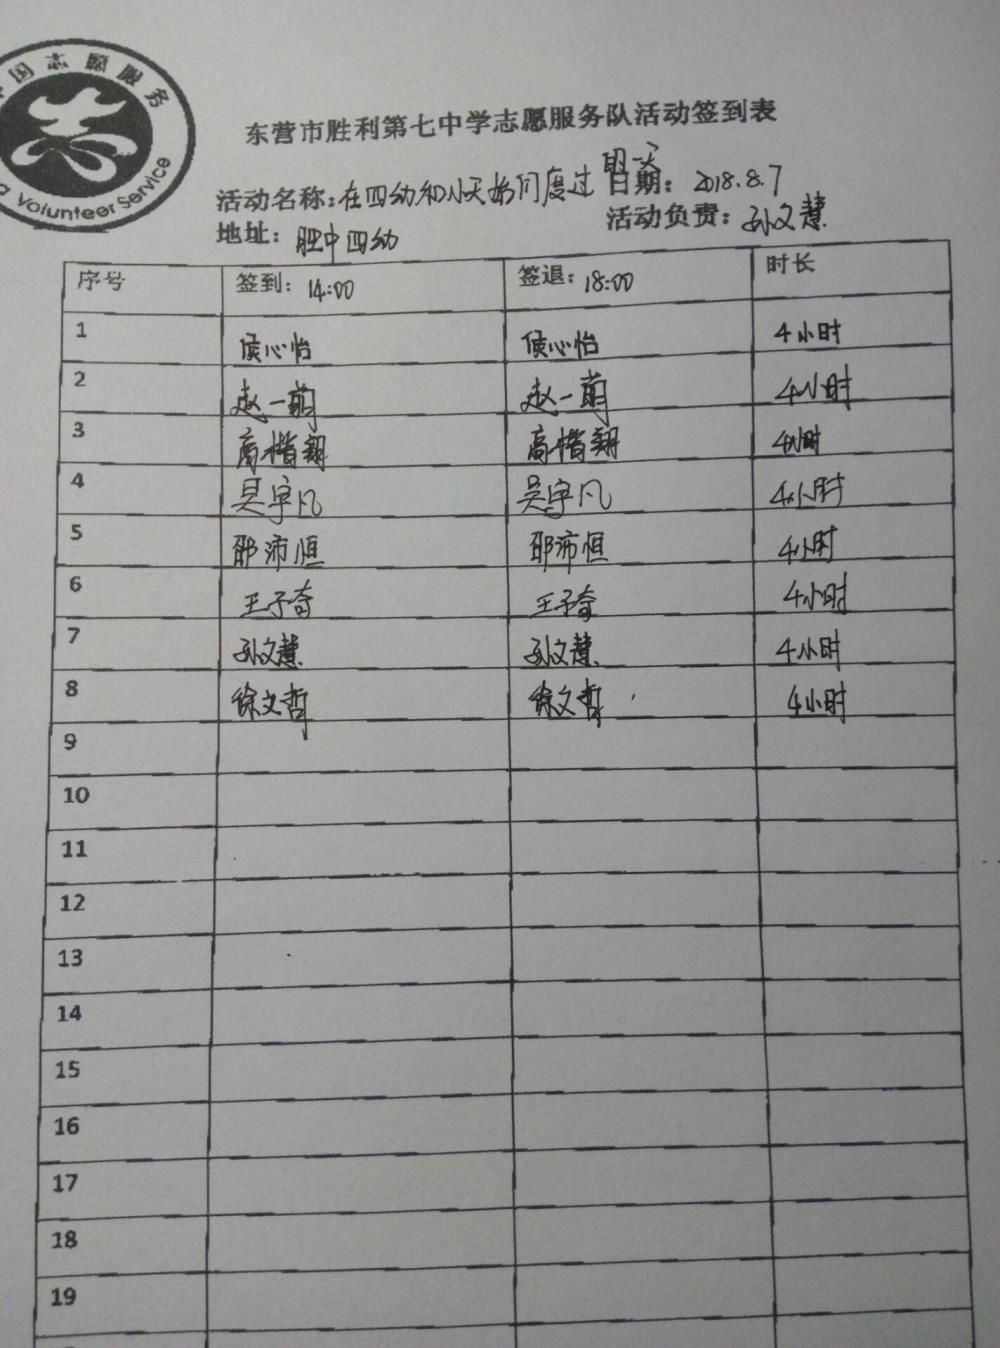 国志愿服务
Volunteer Service
东营市胜利第七中学志愿服务队活动签到表
活动名称:在四幼和小天使们度过明一天 日期: 2018.8.7
地址: 胜中四幼 活动负责: 孙文慧
序号 签到: 14:00 签退: 18:00 时长
1 侯心怡 侯心怡 4小时
2 赵一萌 赵一萌 4小时
3 高楷翔 高楷翔 4小时
4 吴宇凡 吴宇凡 4小时
5 邵沛恒 邵沛恒 4小时
6 王子奇 王子奇 4小时
7 孙文慧 孙文慧 4小时
8 徐文哲 徐文哲 4小时
9
10
11
12
13
14
15
16
17
18
19